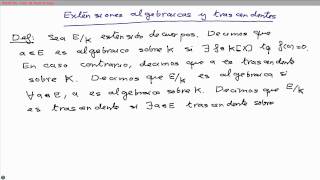 Extensiones algebraicas y trascendentes
Def: Sea E/K extensión de cuerpos. Decimos que
a∈E es algebraico sobre K si ∃ f∈K[X] tq f(a)=0.
En caso contrario, decimos que a es trascendente
sobre K. Decimos que E/K es algebraica si
∀a∈E, a es algebraico sobre K. Decimos que E/K
es trascendente si ∃a∈E trascendente sobre